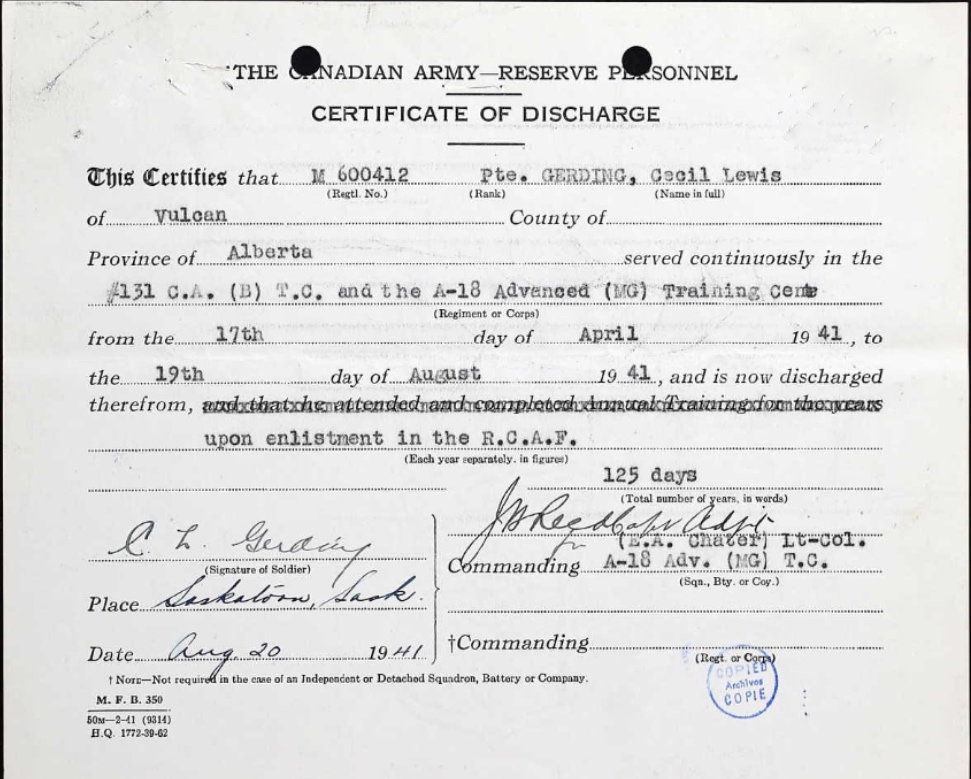 THE CANADIAN ARMY—RESERVE PERSONNEL
CERTIFICATE OF DISCHARGE
This Certifies that M 600412 Pte. GERDING, Cecil Lewis
(Regtl. No.) (Rank) (Name in full)
of Vulcan County of
Province of Alberta served continuously in the
#131 C.A. (B) T.C. and the A-18 Advanced (MG) Training Cent
(Regiment or Corps)
from the 17th day of April 19 41, to
the 19th day of August 19 41, and is now discharged
therefrom, and that he attended and completed Annual Training for the years
upon enlistment in the R.C.A.F.
(Each year separately. in figures)
125 days
(Total number of years, in words)
Capt Adjt
C. L. Gerding for (E.A. Chater) Lt-Col.
(Signature of Soldier) Commanding A-18 Adv. (MG) T.C.
(Sqn., Bty. or Coy.)
Place Saskatoon, Sask.
Date Aug. 20 1941 †Commanding
(Regt. or Corps)
† NOTE—Not required in the case of an Independent or Detached Squadron, Battery or Company.
COPIED
Archives
COPIE
M. F. B. 350
50M—2-41 (9314)
H.Q. 1772-39-62